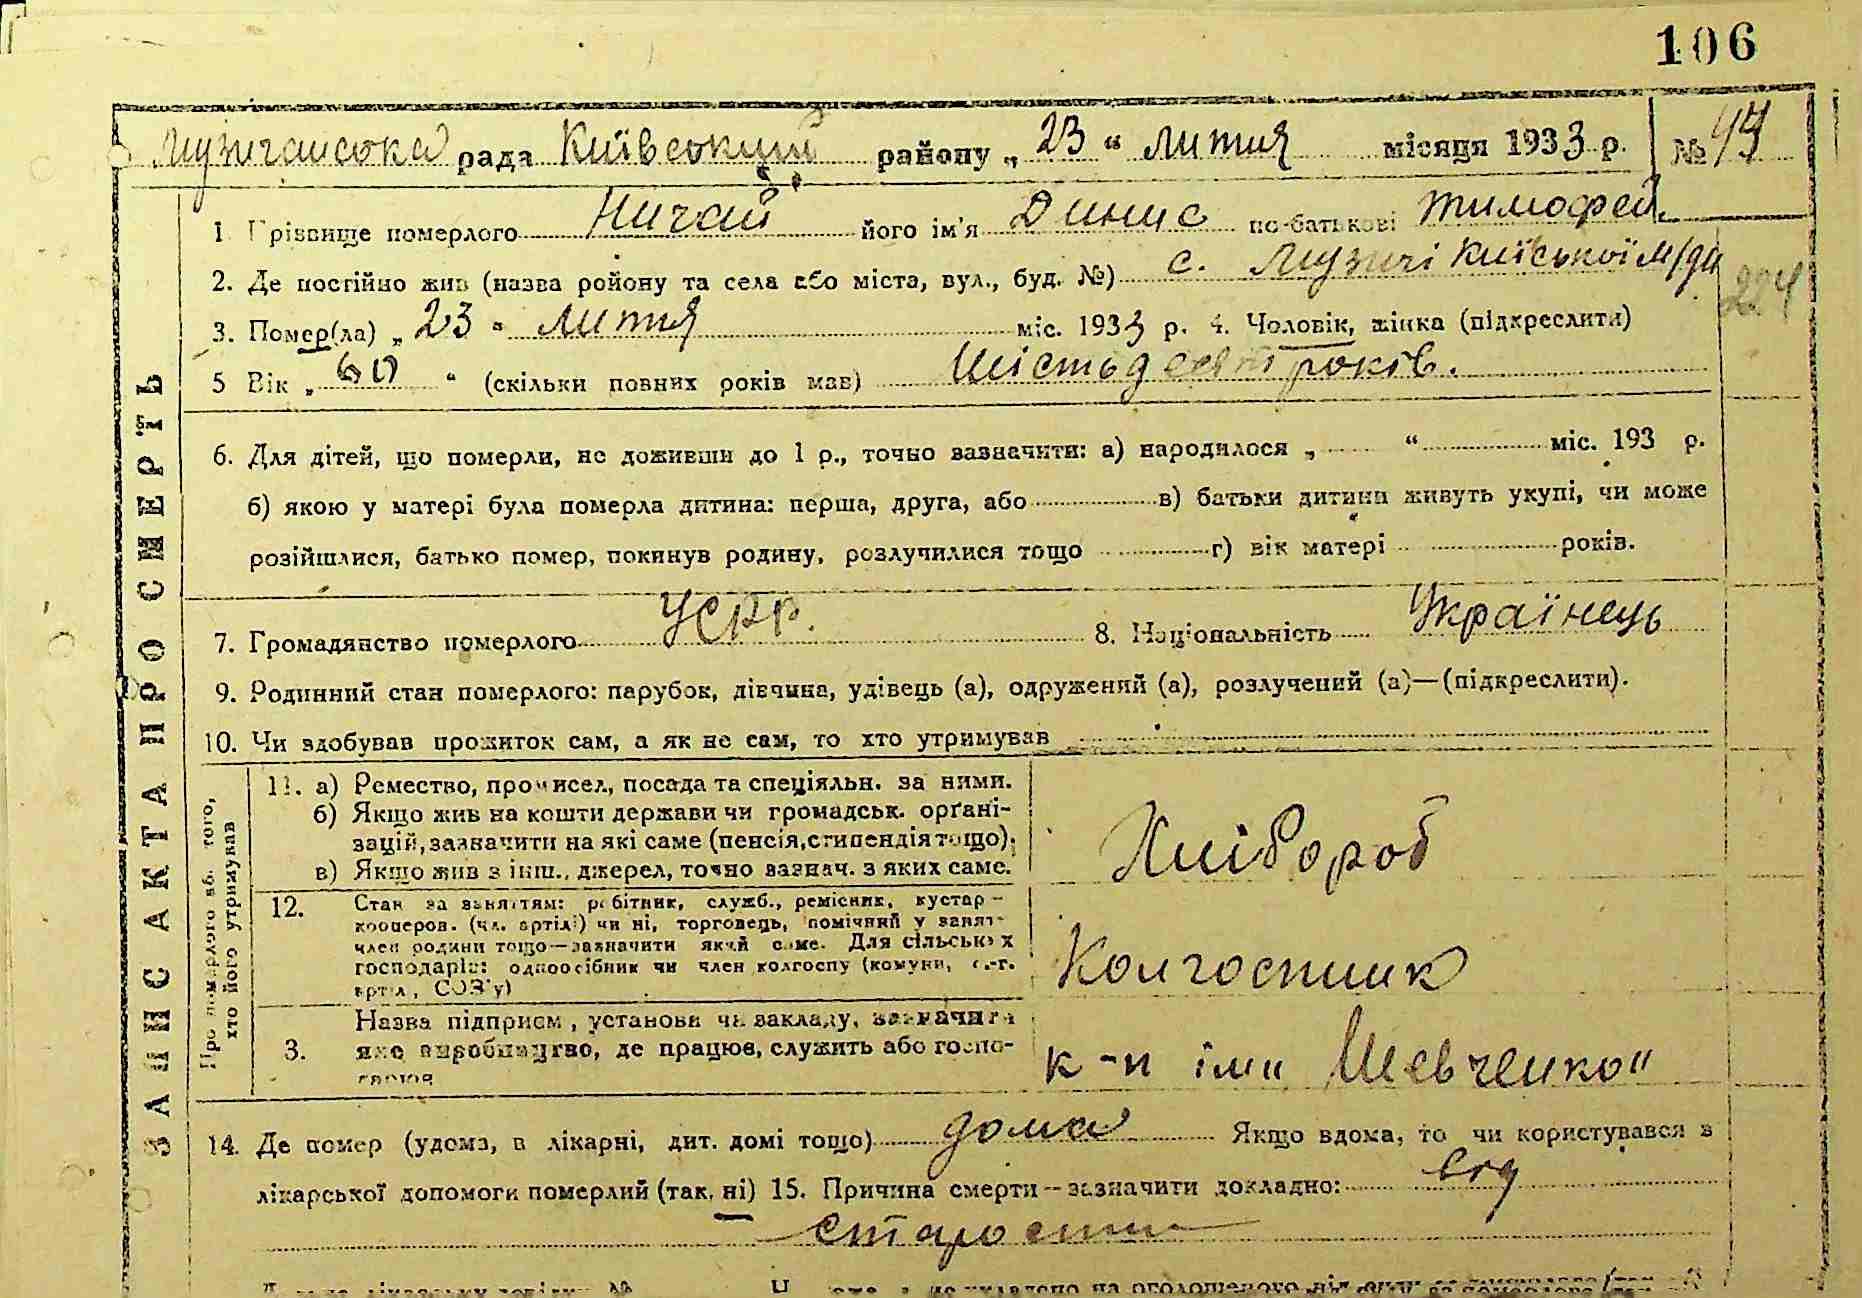 106
Музичанська рада Київський району „ 23 “ лютня місяця 1933 р. № 44
ЗАПИС АКТА ПРО СМЕРТЬ
1. Прізвище померлого Ничай його ім'я Динис по-батькові Тимофей.
2. Де постійно жив (назва району та села або міста, вул., буд. №) с. Музичі Київської м/ди
224
3. Помер(ла) „ 23 “ лютня міс. 1933 р. 4. Чоловік, жінка (підкреслити)
5 Вік „ 60 “ (скільки повних років мав) Шістьдесят років.
6. Для дітей, що померли, не доживши до 1 р., точно зазначити: а) народилося „ “ міс. 193 р.
б) якою у матері була померла дитина: перша, друга, або в) батьки дитини живуть укупі, чи може
розійшлися, батько помер, покинув родину, розлучилися тощо г) вік матері років.
7. Громадянство померлого УСРР. 8. Національність Українець
9. Родинний стан померлого: парубок, дівчина, удівець (а), одружений (а), розлучений (а)—(підкреслити).
10. Чи здобував прожиток сам, а як не сам, то хто утримував
Про померлого аб. того,
хто його утримував
11. а) Ремество, промисел, посада та спеціяльн. за ними.
б) Якщо жив на кошти держави чи громадськ. орґані-
зацій, зазначити на які саме (пенсія, стипендія тощо).
в) Якщо жив з інш., джерел, точно зазнач. з яких саме.
Хлібороб
12. Стан за заняттям: робітник, служб., ремісник, кустар -
кооперов. (чл. артілі) чи ні, торговець, помічний у занят-
член родини тощо—зазначити який саме. Для сільських
господарів: одноосібник чи член колгоспу (комуни, с.-г.
артіл, СОЗ'у)
Колгоспник
Назва підприєм, установи чи закладу, зазначити
3. яке виробництво, де працює, служить або госпо-
дарює
к-п ім „Шевченко“
14. Де помер (удома, в лікарні, дит. домі тощо) дома Якщо вдома, то чи користувався з
лікарської допомоги померлий (так, ні) 15. Причина смерти—зазначити докладно: від
старости